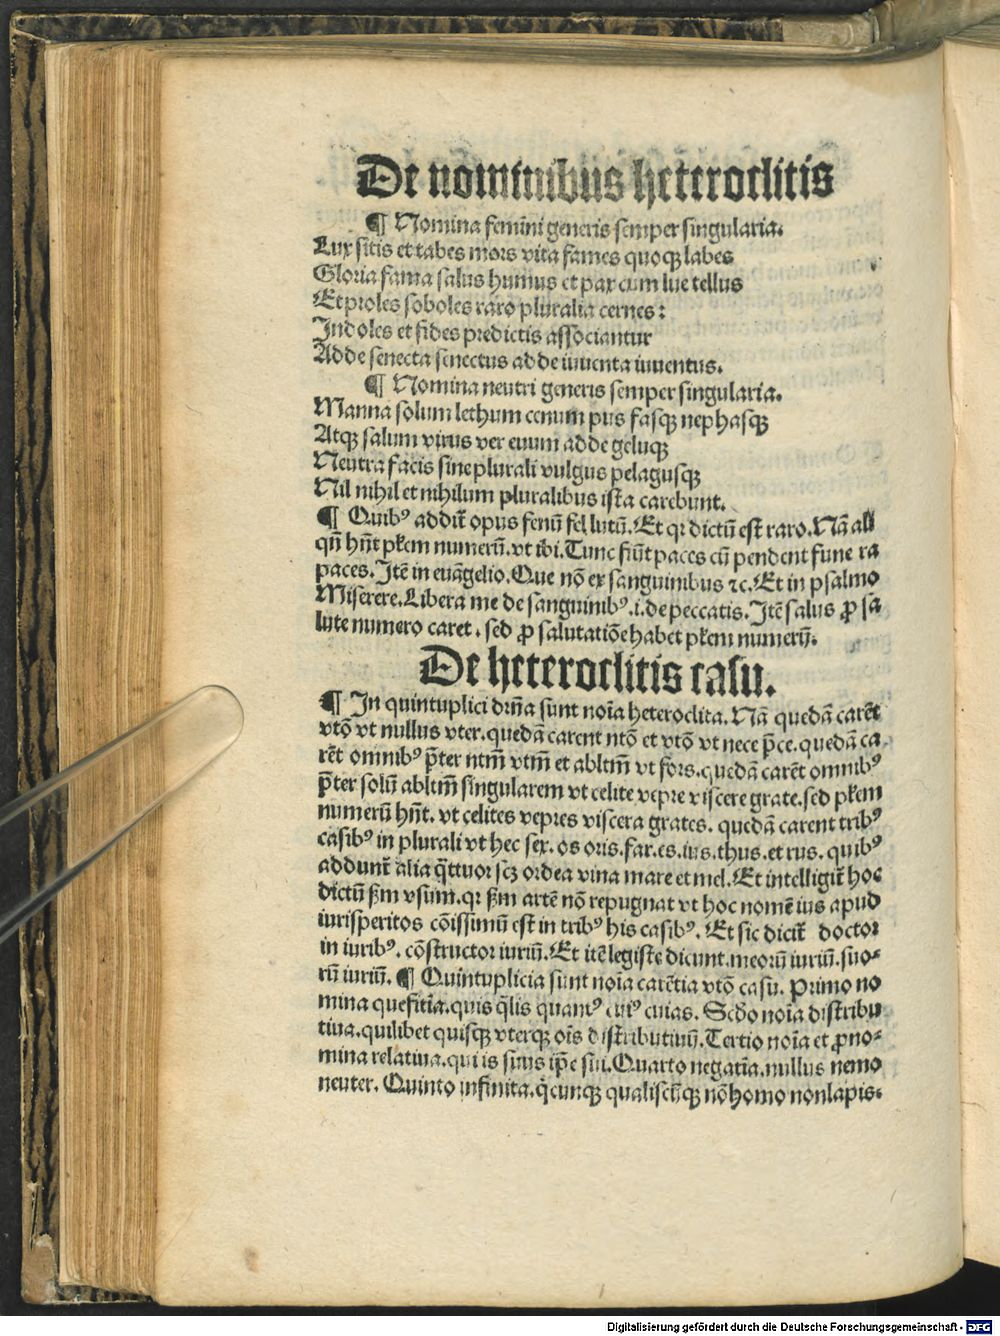 De nominibus heteroclitis
¶ Nomina femini generis semper singularia.
Lux sitis et tabes mors vita fames quoqꝫ labes
Gloria fama salus humus et pax cum lue tellus
Et proles soboles raro pluralia cernes:
Indoles et fides predictis associantur
Adde senecta senectus adde iuuenta iuuentus.
¶ Nomina neutri generis semper singularia.
Manna solum lethum cenum pus fasqꝫ nephasqꝫ
Atqꝫ salum virus ver euum adde geluqꝫ
Neutra facis sine plurali vulgus pelagusqꝫ
Nil nihil et nihilum pluralibus ista carebunt.
¶ Quibꝰ addit̃ opus fenū fel lutū. Et qꝛ dictū est raro. Nā ali
qñ hñt pl̃em numerū. vt ibi. Tunc fiūt paces cū pendent fune ra
paces. Itē in euāgelio. Que nō ex sanguinibus ⁊c. Et in psalmo
Miserere. Libera me de sanguinibꝰ .i. de peccatis. Itē salus ꝓ sa
lute numero caret. sed ꝓ salutatiōe habet pl̃em numerū.
De heteroclitis casu.
¶ In quintuplici dr̃ña sunt noĩa heteroclita. Nā quedā carēt
vtõ vt nullus vter. quedā carent ntõ et vtõ vt nece p̃ce. quedā ca
rēt omnibꝰ p̃ter ntm̃ vtm̃ et abltm̃ vt fors. quedā carēt omnibꝰ
p̃ter solū abltm̃ singularem vt celite vepre viscere grate. sed pl̃em
numerū hñt. vt celites vepres viscera grates. quedā carent tribꝰ
casibꝰ in plurali vt hec fex. os oris. far. es. ius. thus. et rus. quibꝰ
addunt̃ alia q̃ttuor scꝫ ordea vina mare et mel. Et intelligit̃ hoc
dictū ẜm vsum. qꝛ ẜm artē nō repugnat vt hoc nomē ius apud
iurisperitos cōissimū est in tribꝰ his casibꝰ. Et sic dicit̃ doctor
in iuribꝰ. cōstructor iuriū. Et itē legiste dicunt. meorū iuriū. suo⸗
rū iuriū. ¶ Quintuplicia sunt noĩa carētia vtõ casu. Primo no
mina quesitĩa. quis q̃lis quantꝰ cuiꝰ cuias. Scd̃o noĩa distribu
tiua. quilibet quisqꝫ vterqꝫ oĩs distributiuū. Tertio noĩa et ꝓno⸗
mina relatiua. qui is suus ip̃e sui. Quarto negatĩa. nullus nemo
neuter. Quinto infinita. q̃cunqꝫ qualiscūqꝫ nō homo non lapis.
Digitalisierung gefördert durch die Deutsche Forschungsgemeinschaft - DFG